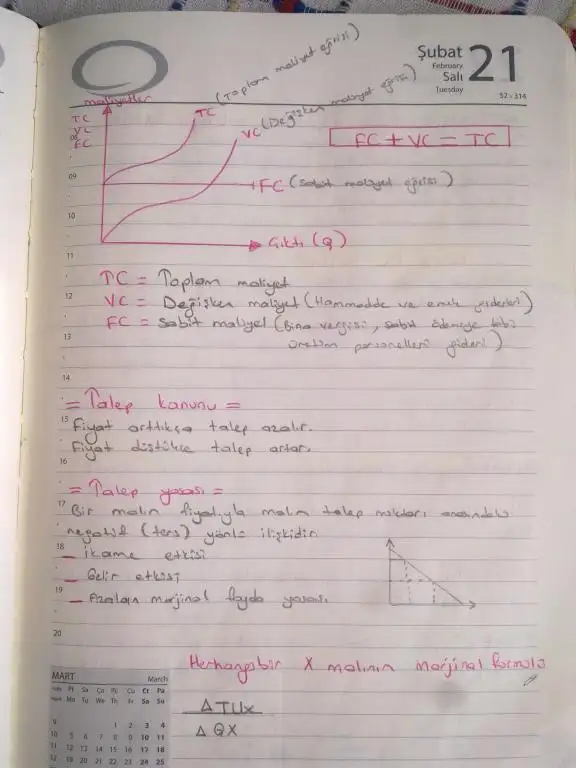 Şubat
February
Salı
Tuesday
21
52 - 314
maliyetler
TC
VC
FC
TC (Toplam maliyet eğrisi)
VC (Değişken maliyet eğrisi)
FC + VC = TC
FC (Sabit maliyet eğrisi)
Çıktı (Q)
08
09
10
11
TC = Toplam maliyet
12
VC = Değişken maliyet (Hammadde ve emek giderleri)
FC = Sabit maliyet (Bina vergisi, sabit ödemeye tabi
13
üretim personelleri gideri)
14
= Talep kanunu =
15
Fiyat arttıkça talep azalır.
Fiyat düştükçe talep artar.
16
= Talep yasası =
17
Bir malın fiyatıyla malın talep miktarı arasındaki
negatif (ters) yönlü ilişkidir.
18
_ İkame etkisi
_ Gelir etkisi
19
_ Azalan marjinal fayda yasası.
20
Herhangi bir X malının marjinal formülü
ΔTUx
ΔQX
MART March
Pt Sa Ça Pe Cu Ct Pa
Mo Tu We Th Fr Sa Su
9 1 2 3 4
10 5 6 7 8 9 10 11
11 12 13 14 15 16 17 18
12 19 20 21 22 23 24 25